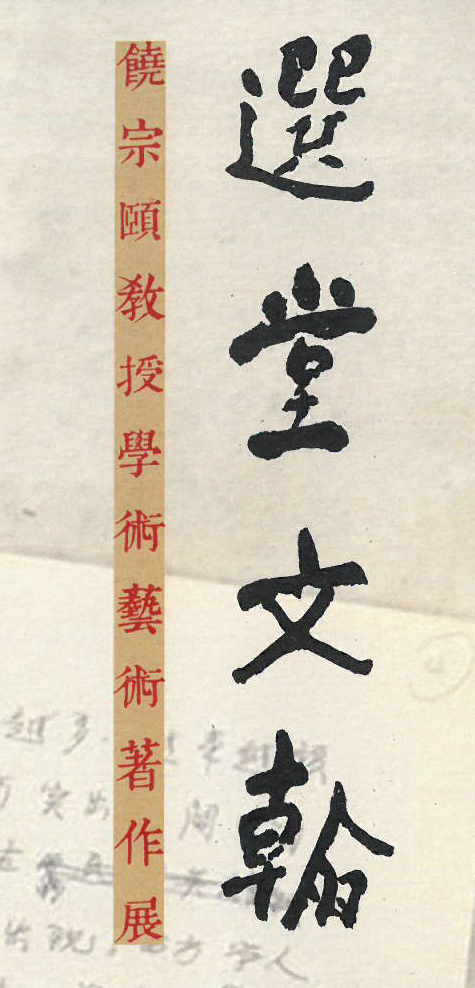 選堂文翰
饒宗頤教授學術藝術著作展